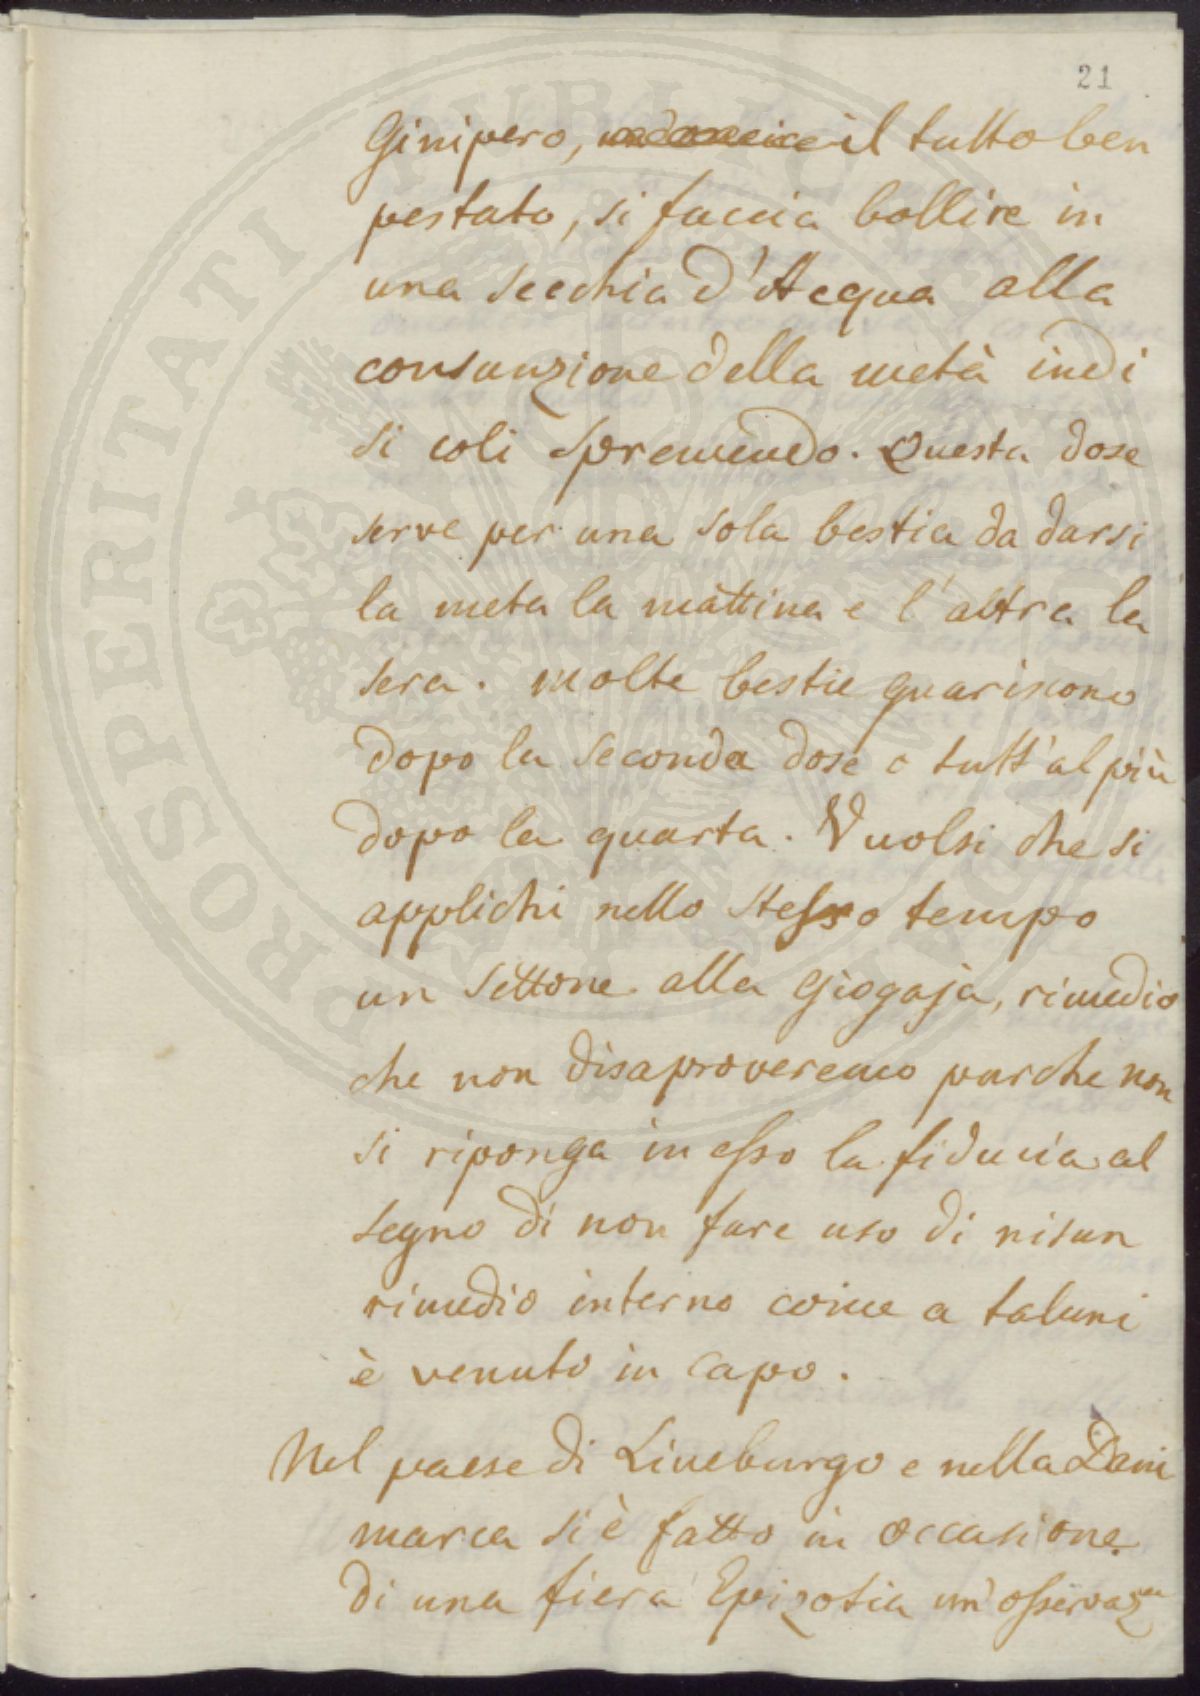 21
Ginipero, il tutto ben
pestato, si faccia bollire in
una secchia d'Acqua alla
consunzione della metà indi
si coli spremendo. Questa dose
serve per una sola bestia da darsi
la meta la mattina e l'altra la
sera. molte bestie guariscono
dopo la seconda dose o tutt'al più
dopo la quarta. Vuolsi che si
applichi nello stesso tempo
un settone alla giogaja, rimedio
che non disaproveremo purche non
si riponga in esso la fiducia al
segno di non fare uso di nisun
rimedio interno come a taluni
è venuto in capo.
Nel paese di Lineburgo e nella Dani
marca si è fatto in occasione
di una fiera Epizotia un'osservazne
PROSPERITATI PUBLICAE